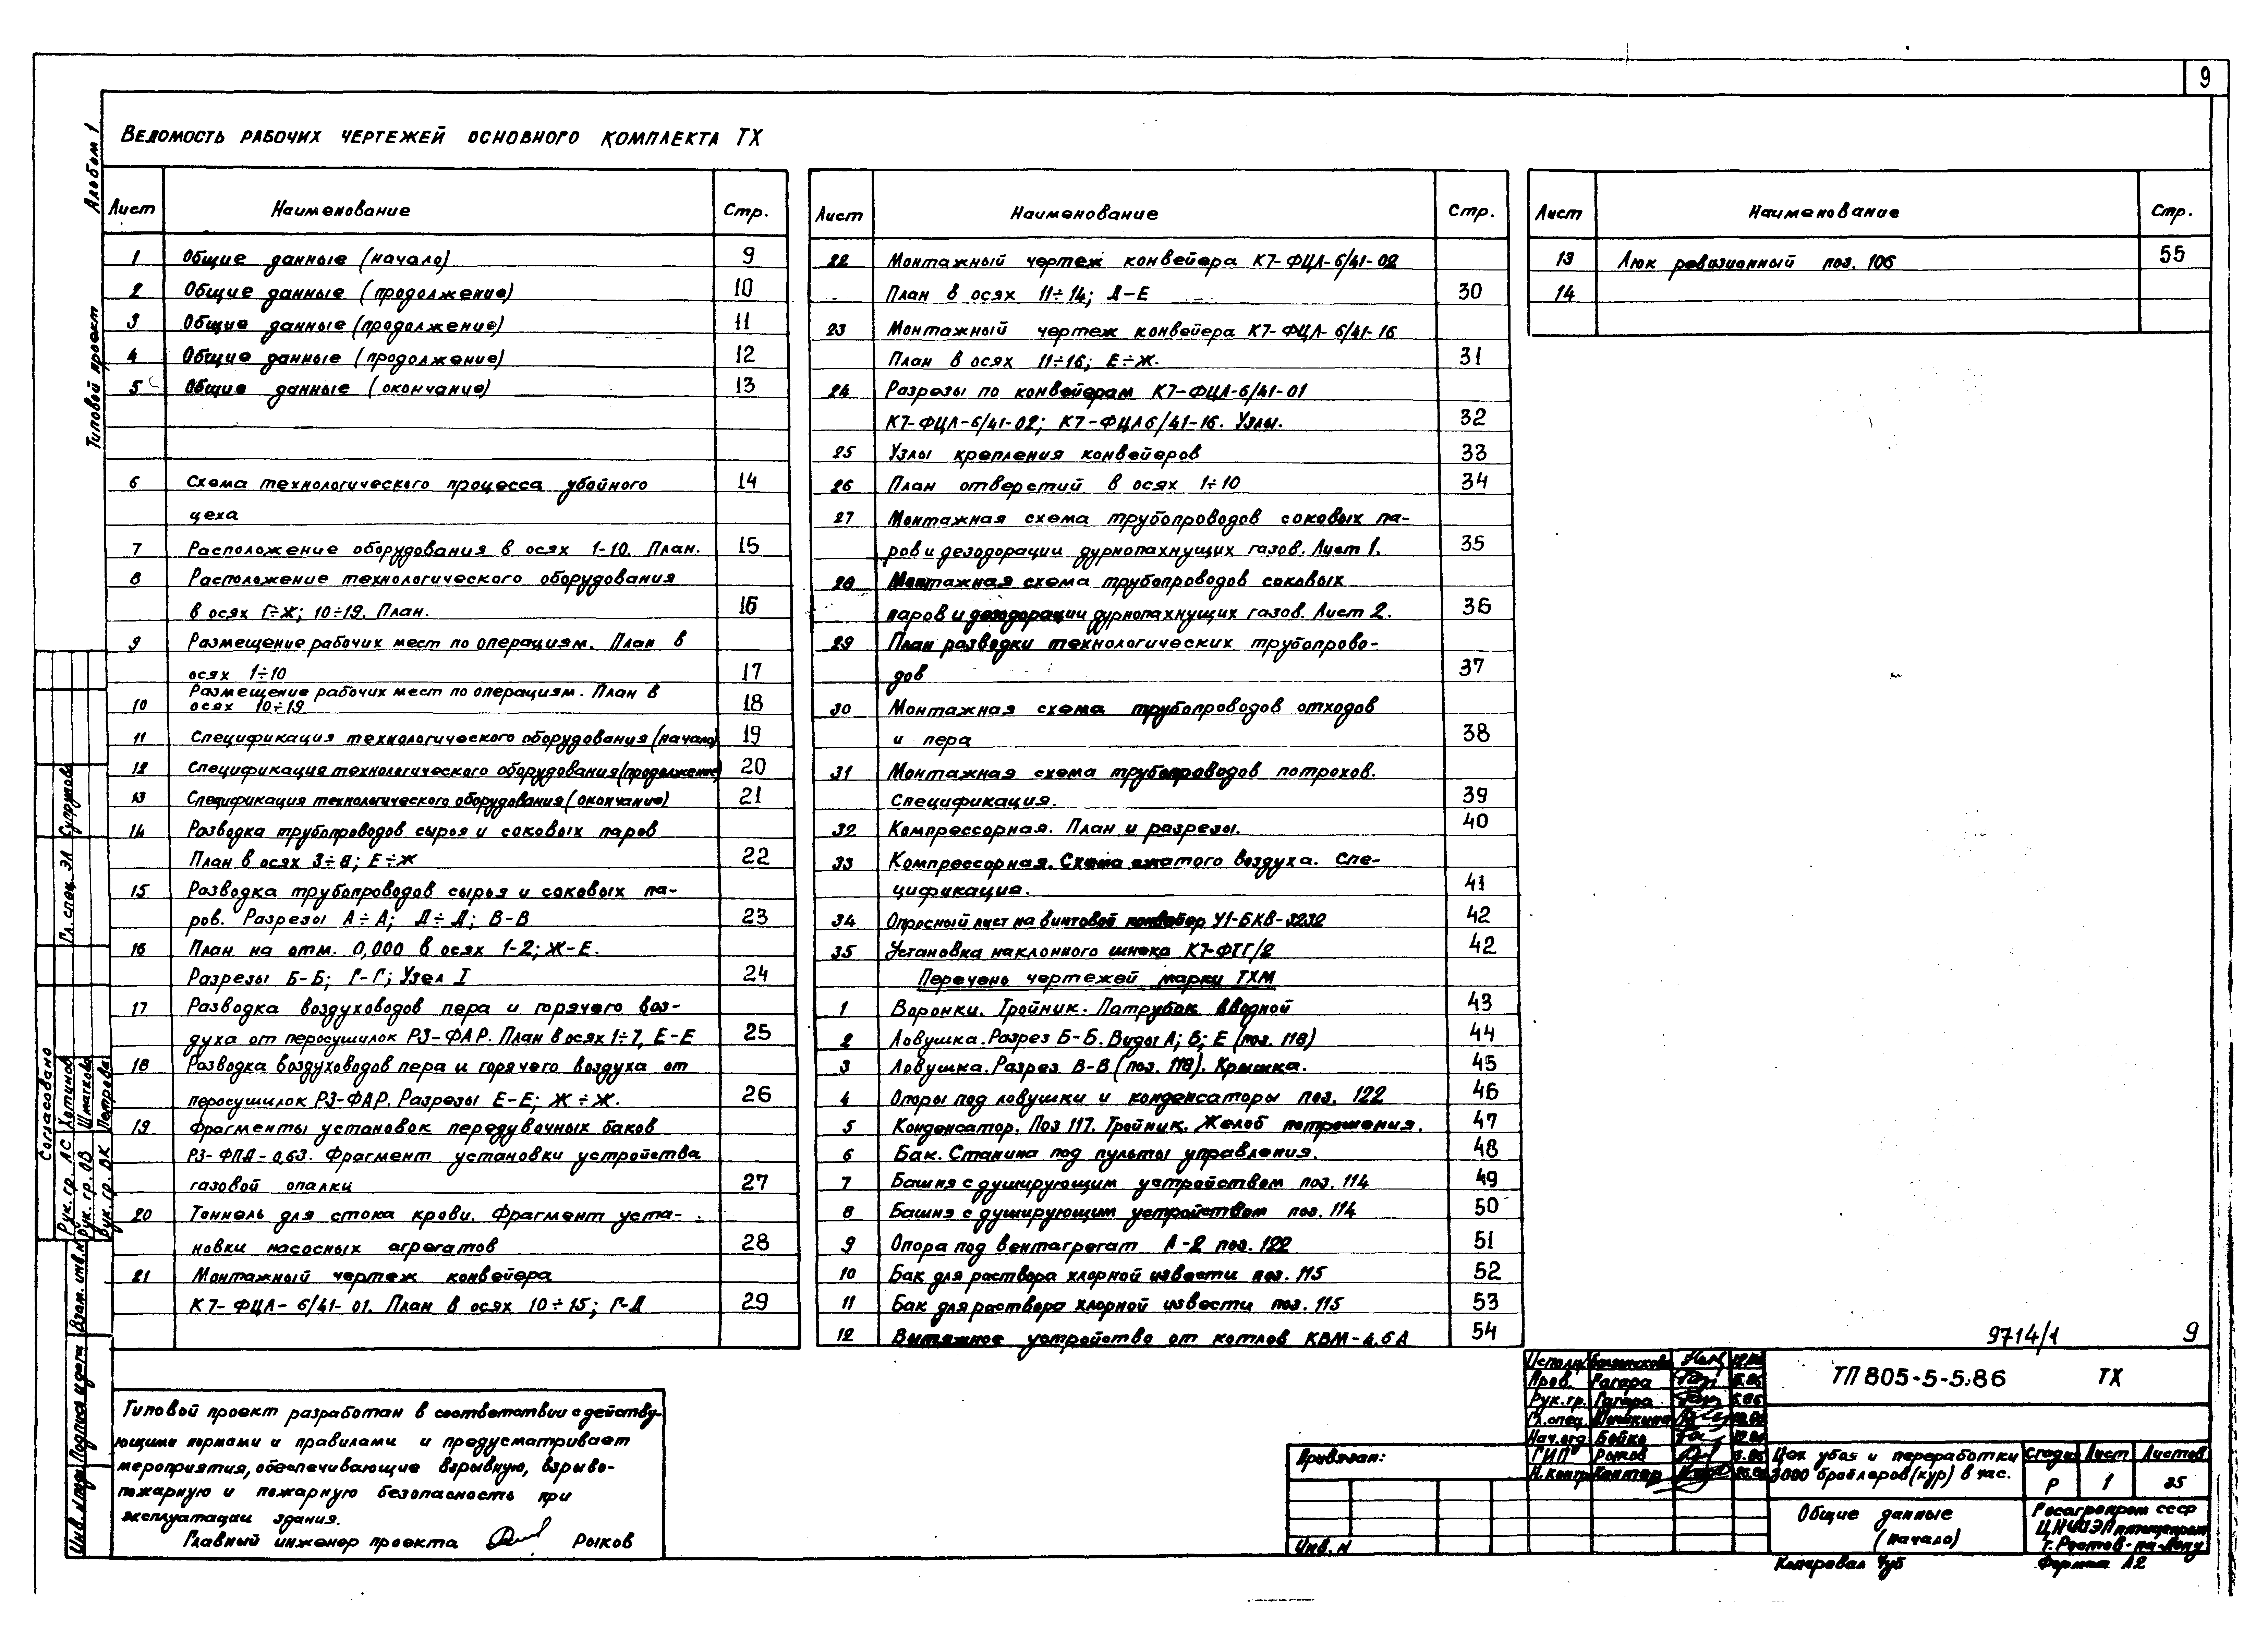 9
Альбом 1
Типовой проект
Ведомость рабочих чертежей основного комплекта ТХ
Лист Наименование Стр.
1 Общие данные (начало) 9
2 Общие данные (продолжение) 10
3 Общие данные (продолжение) 11
4 Общие данные (продолжение) 12
5 Общие данные (окончание) 13
6 Схема технологического процесса убойного 14
цеха
7 Расположение оборудования в осях 1-10. План. 15
8 Расположение технологического оборудования
в осях Г÷Ж; 10÷19. План. 16
9 Размещение рабочих мест по операциям. План в
осях 1÷10 17
Размещение рабочих мест по операциям. План в
10 осях 10÷19 18
11 Спецификация технологического оборудования (начало) 19
12 Спецификация технологического оборудования (продолжение) 20
13 Спецификация технологического оборудования (окончание) 21
14 Разводка трубопроводов сырья и соковых паров
План в осях 3÷8; Е÷Ж 22
15 Разводка трубопроводов сырья и соковых па-
ров. Разрезы А÷А; Д÷Д; В-В 23
16 План на отм. 0,000 в осях 1-2; Ж-Е.
Разрезы Б-Б; Г-Г; Узел I 24
17 Разводка воздуховодов пера и горячего воз-
духа от перосушилок РЗ-ФАР. План в осях 1÷7, Е-Е 25
18 Разводка воздуховодов пера и горячего воздуха от
перосушилок РЗ-ФАР. Разрезы Е-Е; Ж÷Ж. 26
19 Фрагменты установок передувочных баков
РЗ-ФПД-0,63. Фрагмент установки устройства
газовой опалки 27
20 Тоннель для стока крови. Фрагмент уста-
новки насосных агрегатов 28
21 Монтажный чертеж конвейера
К7-ФЦЛ-6/41-01. План в осях 10÷15; Г-Д 29
Лист Наименование Стр.
22 Монтажный чертеж конвейера К7-ФЦЛ-6/41-02
План в осях 11÷14; Д-Е 30
23 Монтажный чертеж конвейера К7-ФЦЛ-6/41-16
План в осях 11÷16; Е÷Ж. 31
24 Разрезы по конвейерам К7-ФЦЛ-6/41-01
К7-ФЦЛ-6/41-02; К7-ФЦЛ6/41-16. Узлы. 32
25 Узлы крепления конвейеров 33
26 План отверстий в осях 1÷10 34
27 Монтажная схема трубопроводов соковых па-
ров и дезодорации дурнопахнущих газов. Лист 1. 35
28 Монтажная схема трубопроводов соковых
паров и дезодорации дурнопахнущих газов. Лист 2. 36
29 План разводки технологических трубопрово-
дов 37
30 Монтажная схема трубопроводов отходов
и пера 38
31 Монтажная схема трубопроводов потрохов.
Спецификация. 39
32 Компрессорная. План и разрезы. 40
33 Компрессорная. Схема сжатого воздуха. Спе-
цификация. 41
34 Опросный лист на винтовой конвейер У1-БКВ-3232 42
35 Установка наклонного шнека К7-ФТГ/2 42
Перечень чертежей марки ТХМ
1 Воронки. Тройник. Патрубок вводной 43
2 Ловушка. Разрез Б-Б. Виды А; Б; Е (поз. 118) 44
3 Ловушка. Разрез В-В (поз. 118). Крышка. 45
4 Опоры под ловушки и конденсаторы поз. 122 46
5 Конденсатор. Поз 117. Тройник. Желоб потрошения. 47
6 Бак. Станина под пульты управления. 48
7 Башня с душирующим устройством поз. 114 49
8 Башня с душирующим устройством поз. 114 50
9 Опора под вентагрегат А-2 поз. 122 51
10 Бак для раствора хлорной извести поз. 115 52
11 Бак для раствора хлорной извести поз. 115 53
12 Вытяжное устройство от котлов КВМ-4.6А 54
Лист Наименование Стр.
13 Люк ревизионный поз. 106 55
14
Согласовано
Гл. спец. ЭЛ Супрунова
Рук. гр. АС Хотинов
Рук. гр. ОВ Шматкова
Рук. гр. ВК Петрова
Взам. инв. N
Подпись и дата
Инв. N подл
Типовой проект разработан в соответствии с действу-
ющими нормами и правилами и предусматривает
мероприятия, обеспечивающие взрывную, взрыво-
пожарную и пожарную безопасность при
эксплуатации здания.
Главный инженер проекта Рыков
9714/1 9
Исполн.
Пров. Гагара
Рук. гр. Гагара
Гл. спец.
Нач. отд Бойко
ГИП Рыков
Н. контр Кантор
Привязан:
Инв. N
ТП 805-5-5.86 ТХ
Цех убоя и переработки
3000 бройлеров (кур) в час.
Стадия Лист Листов
Р 1 35
Общие данные
(начало)
Росагропром СССР
ЦНИИЭПптицепром
г. Ростов-на-Дону
Копировал Чуб Формат А2